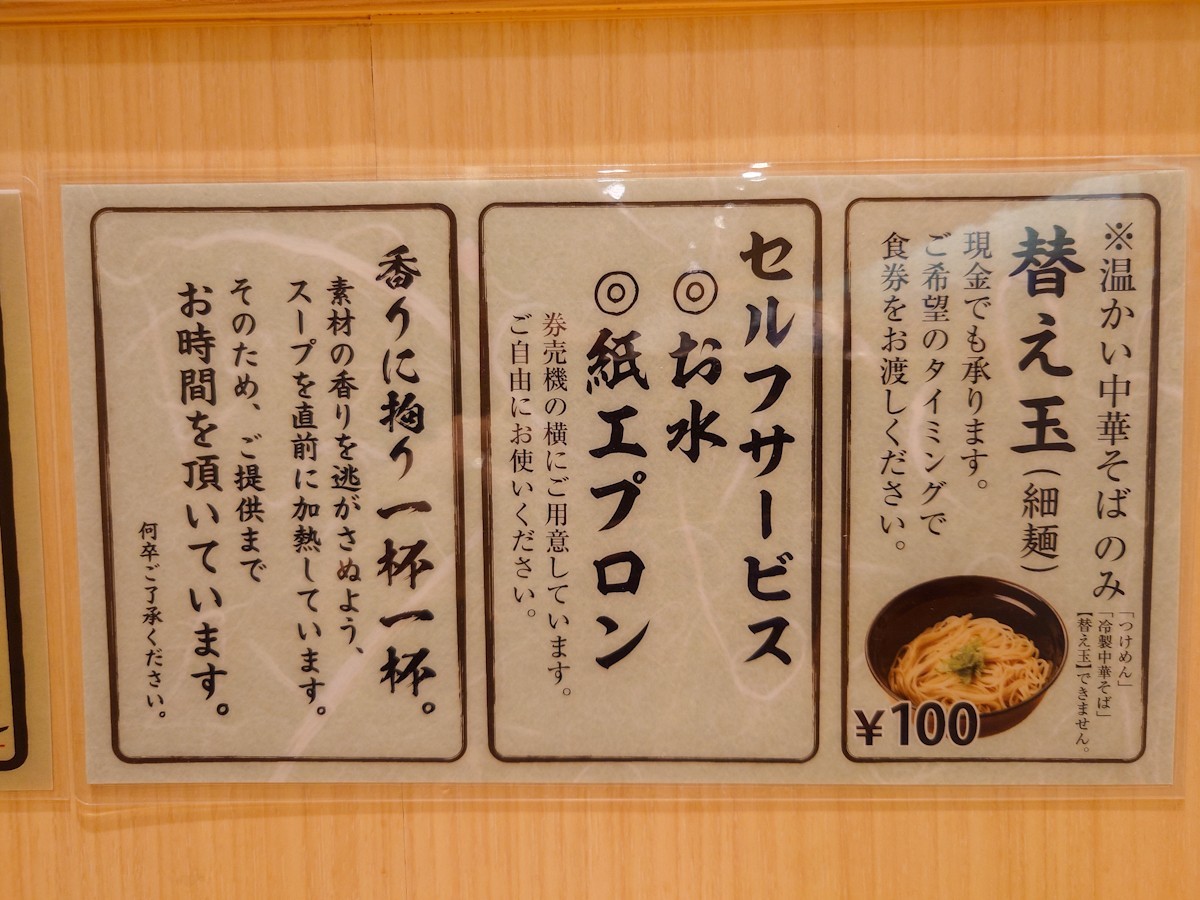 ※温かい中華そばのみ
「つけめん」
「冷製中華そば」
【替え玉】できません。
替え玉(細麺)
現金でも承ります。
ご希望のタイミングで
食券をお渡しください。
¥100
セルフサービス
◎お水
◎紙エプロン
券売機の横にご用意しています。
ご自由にお使いください。
香りに拘り一杯一杯。
素材の香りを逃がさぬよう、
スープを直前に加熱しています。
そのため、ご提供まで
お時間を頂いています。
何卒ご了承ください。